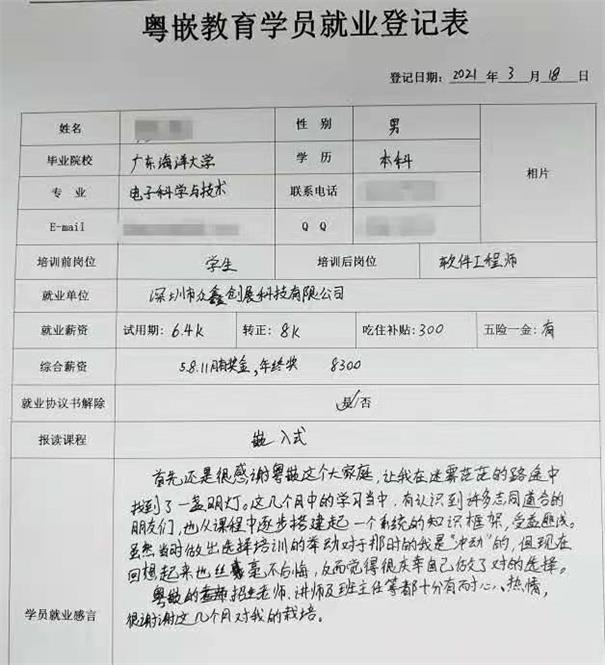 粤嵌教育学员就业登记表
登记日期：2021 年 3 月 18 日
姓名 性 别 男
毕业院校 广东海洋大学 学 历 本科 相片
专 业 电子科学与技术 联系电话
E-mail Q Q
培训前岗位 学生 培训后岗位 软件工程师
就业单位 深圳市众鑫创展科技有限公司
就业薪资 试用期：6.4k 转正：8k 吃住补贴：300 五险一金：有
综合薪资 5.8.11月有奖金，年终奖 8300
就业协议书解除 是/否
报读课程 嵌入式
首先还是很感谢粤嵌这个大家庭，让我在迷雾茫茫的路途中
找到了一盏明灯。这几个月中的学习当中，有认识到许多志同道合的
朋友们，也从课程中逐步搭建起一个系统的知识框架，受益匪浅。
虽然当时做出选择培训的举动对于那时的我是“冲动”的，但现在
回想起来也丝毫不后悔，反而觉得很庆幸自己做了对的选择。
粤嵌的招生老师、讲师及班主任等都十分有耐心、热情，
很谢谢这几个月对我的栽培。
学员就业感言